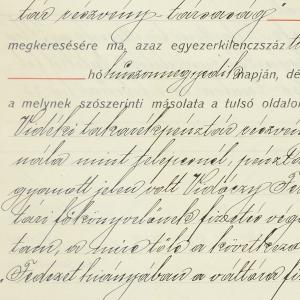 tár részvény-társaság"
megkeresésére ma, azaz egyezerkilenczszáz
hó huszonnegyedik napján, dé
a melynek szószerinti másolata a tulsó oldalon
Vidéki takarékpénztár részvén
nála mint felperesnél, pénztá
gyanott jelen volt Vidóczy Fe
tári főkönyvelőnek fizetés vég
tam, a mire tőle a következő
„Fedezet hiányában a váltóra fiz